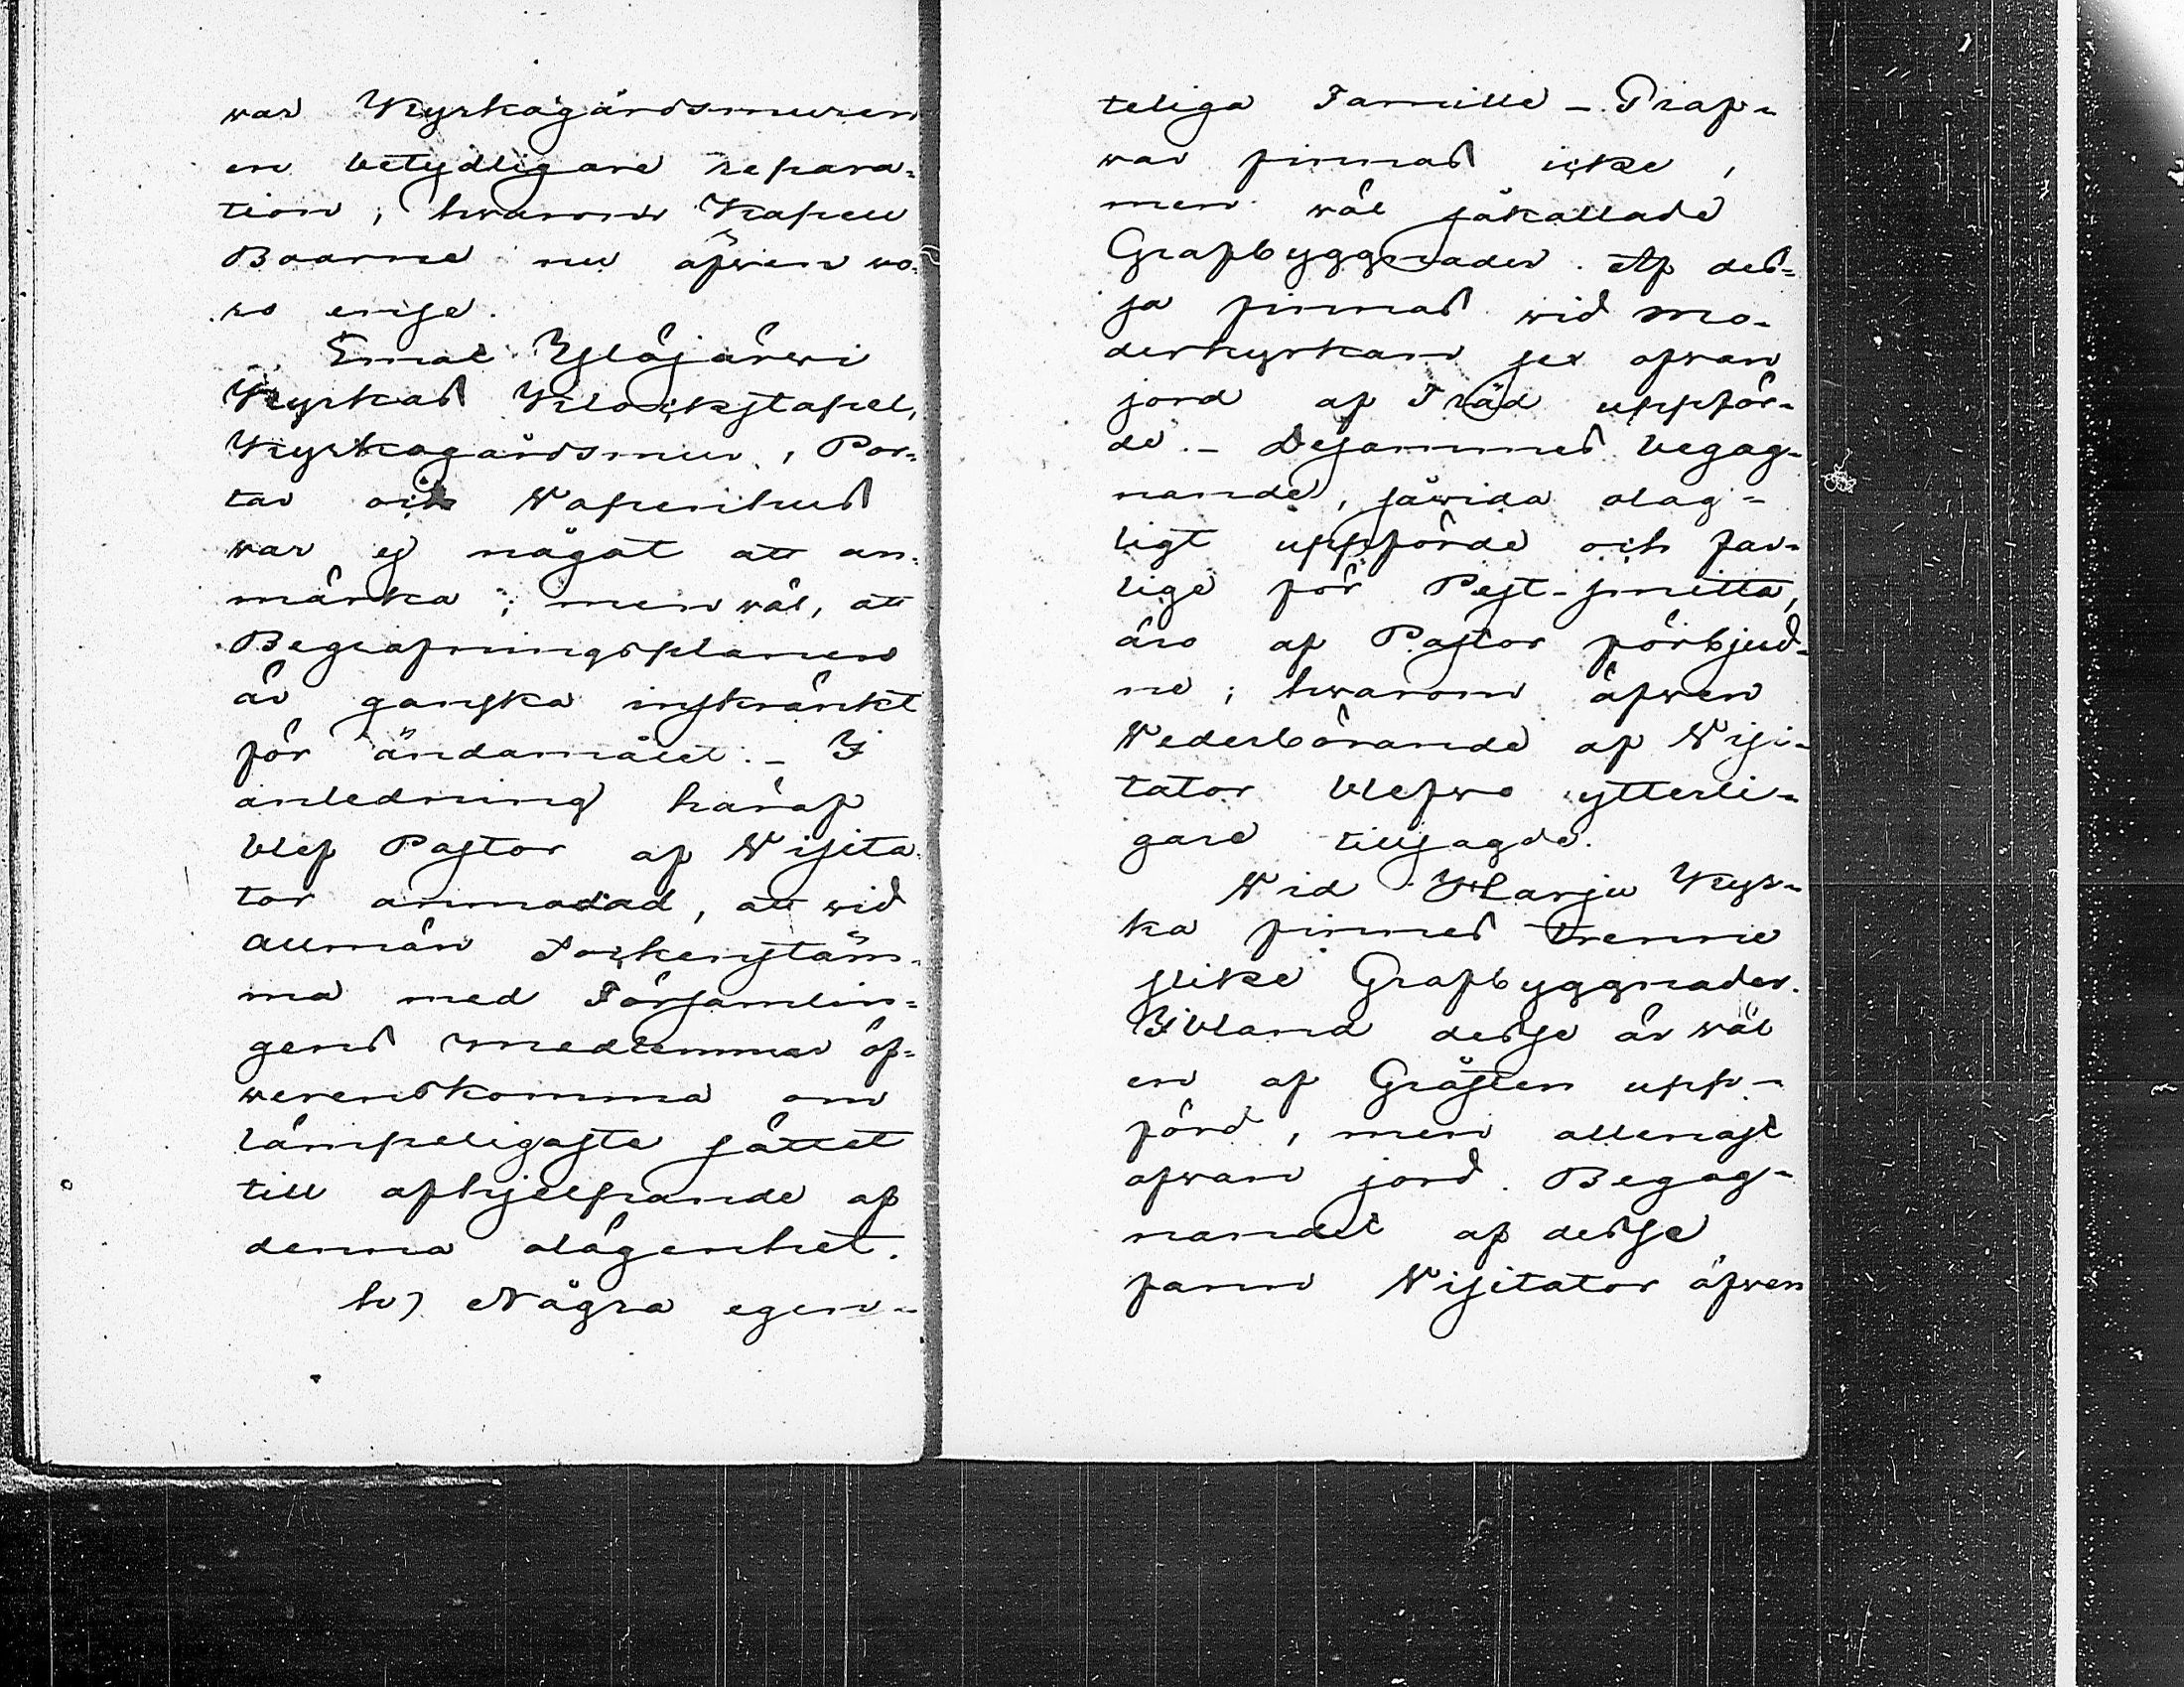 war Kyrkogårdsmuren
en betydligare repara=
tion; hwarom Kapell
Boarne nu äfwen wo=
ro ense.
Emot Ylöjärwi
Kyrkas Klockstapel,
Kyrkogårdsmur, Por=
tar och Wapenhus
war ej något att an=
märka; men wäl, att
Begrafningsplanen
är ganska inskränkt
för ändamålet. – I
anledning häraf
blef Pastor af Wisita=
tor anmodad, att wid
allmän Sockenstäm=
ma med Församlin=
gens medlemmar öf=
werenskomma om
lämpeligaste sättet
till afhjelpande af
denna olägenhet.
h) Några egen-
teliga Famille-Graf-
war finnas icke,
men wäl såkallade
Grafbyggnader. Af des=
sa finnas wid mo-
derkyrkan sex ofwan
jord af Träd uppför-
de. – Desammes begag-
nande, såwida olag-
ligt uppförde och far-
lige för Pest-smitta,
äro af Pastor förbjud-
ne; hwarom äfwen
Wederbörande af Wisi-
tator blefwo ytterli-
gare tillsagde.
Wid Harju Kyr-
ka finnes trenne
slike Grafbyggnader.
Ibland desse är wäl
en af Gråsten upp-
förd, men allenast
ofwan jord. Begag-
nandet af desse
fann Wisitator äfwen